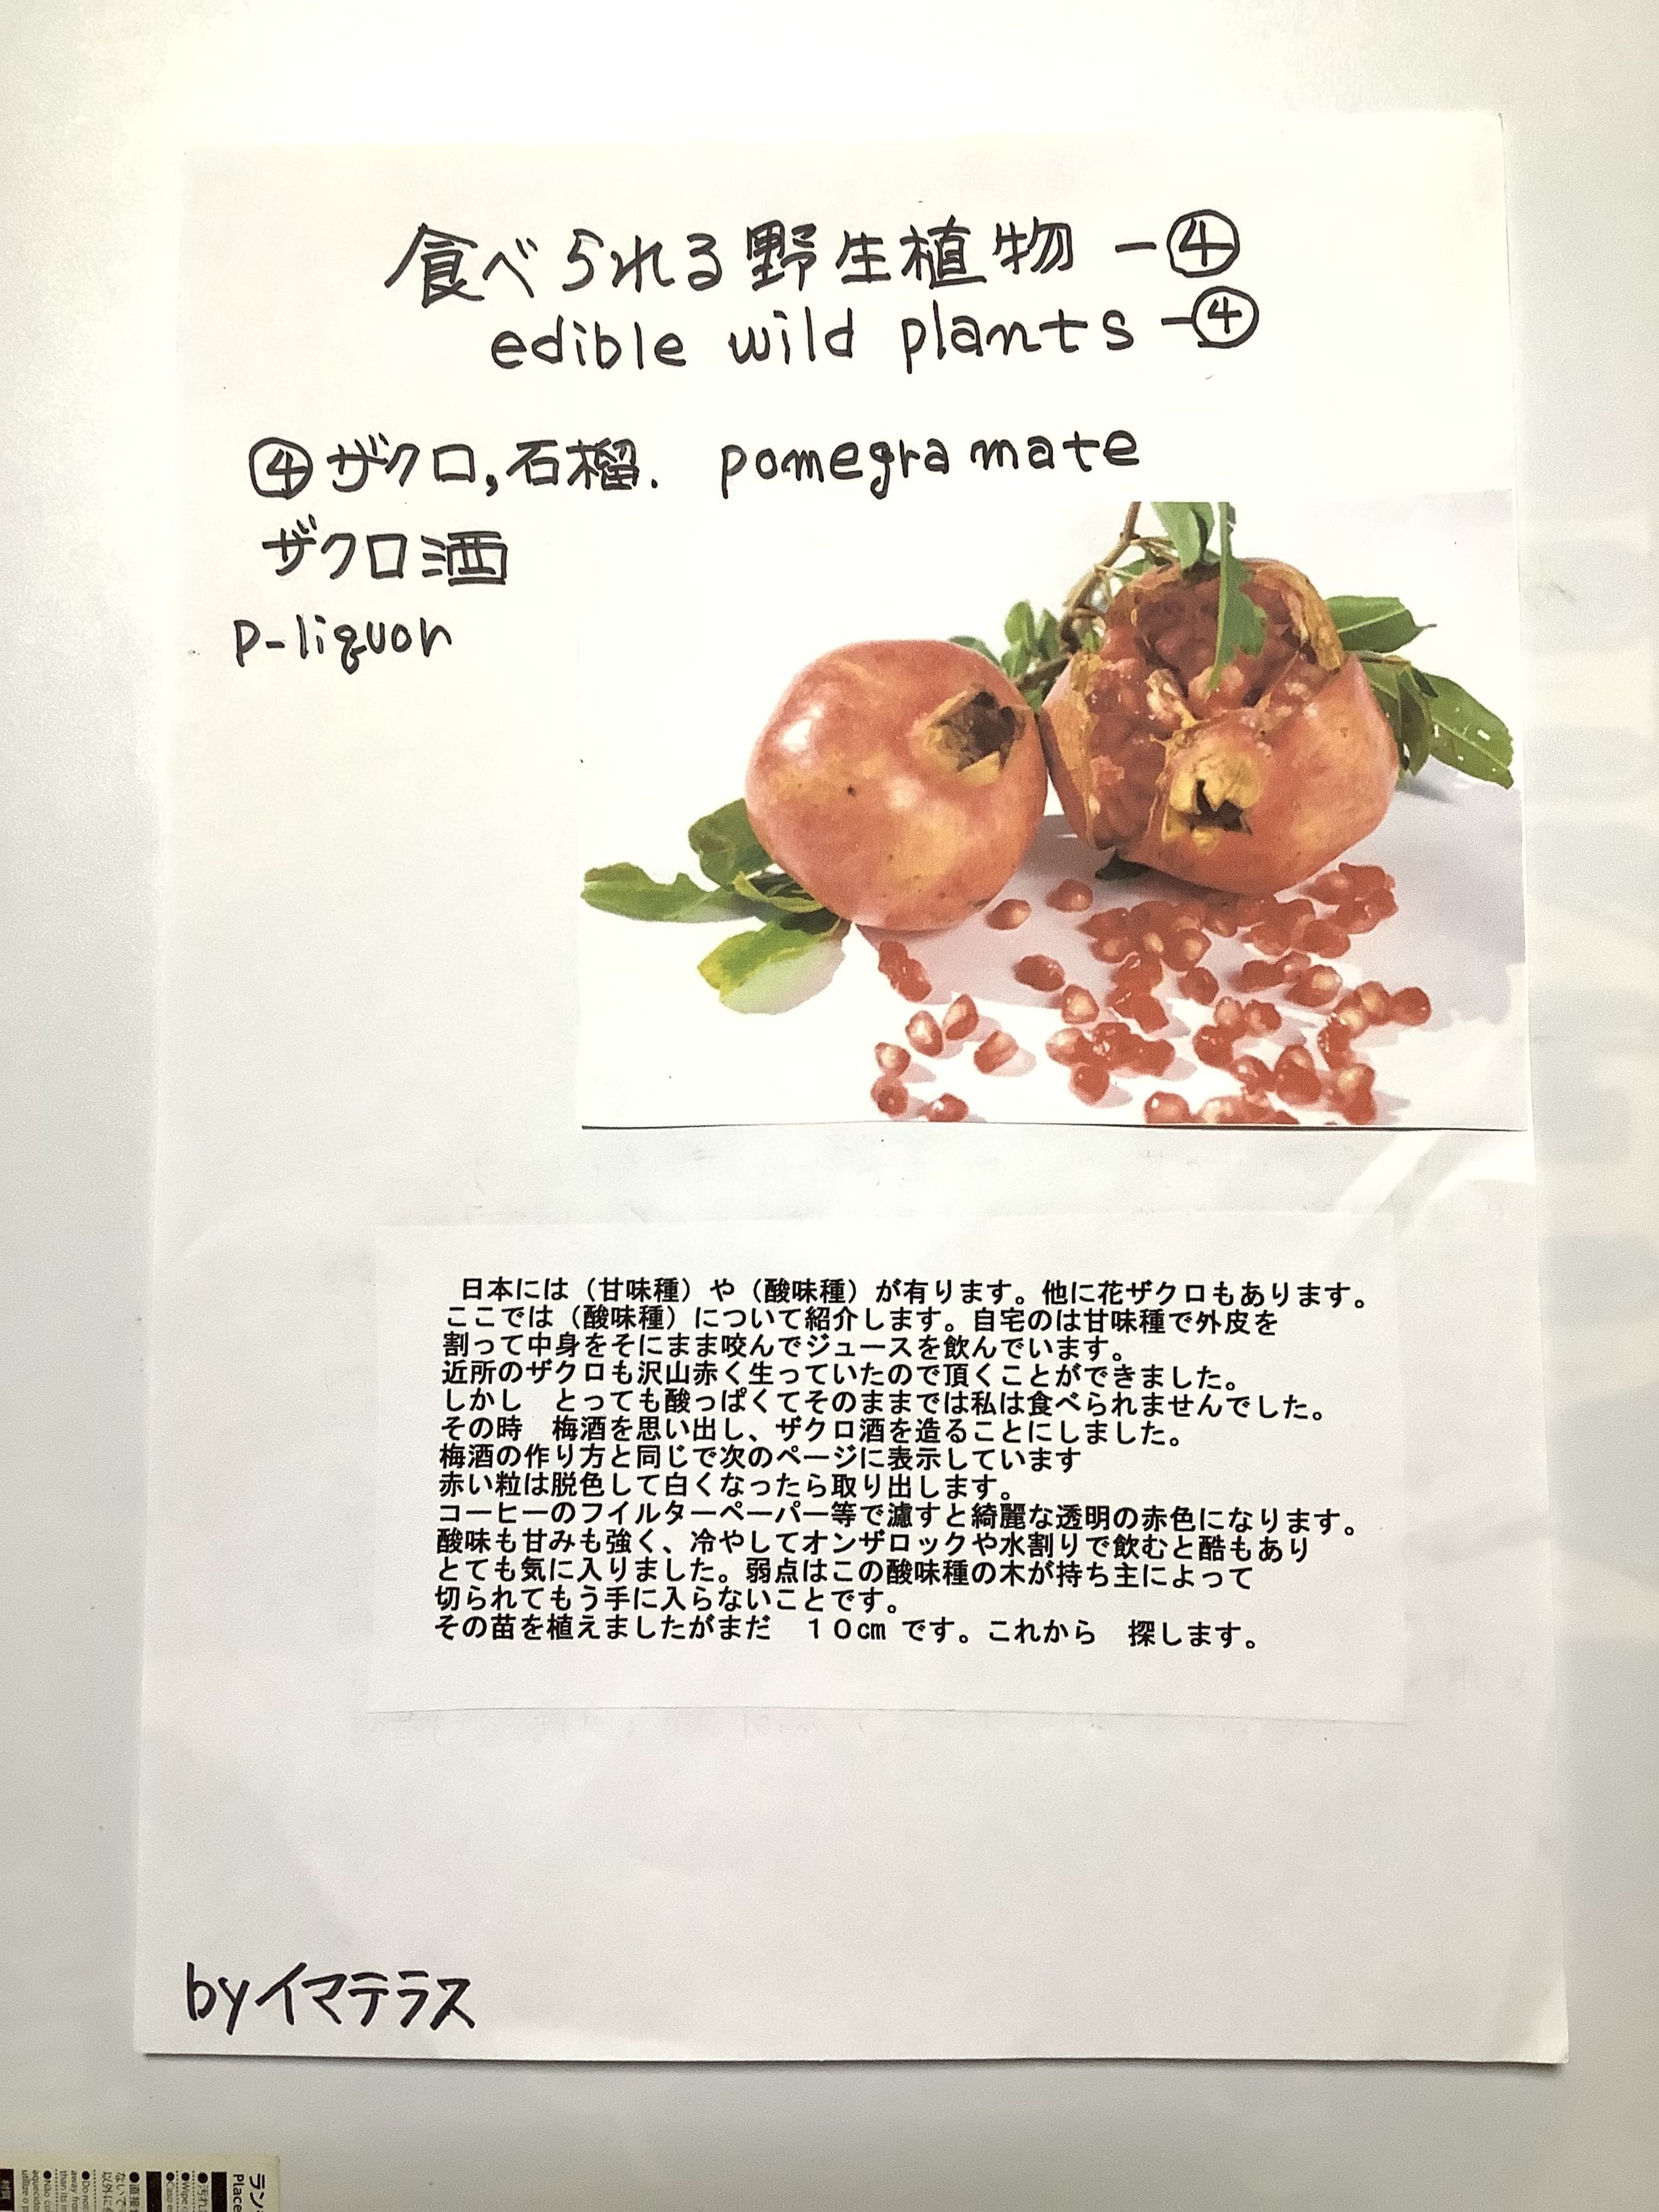 食べられる野生植物 -④
edible wild plants -④
④ザクロ,石榴. pomegramate
ザクロ酒
P-liquor
日本には（甘味種）や（酸味種）が有ります。他に花ザクロもあります。
ここでは（酸味種）について紹介します。自宅のは甘味種で外皮を
割って中身をそにまま咬んでジュースを飲んでいます。
近所のザクロも沢山赤く生っていたので頂くことができました。
しかし　とっても酸っぱくてそのままでは私は食べられませんでした。
その時　梅酒を思い出し、ザクロ酒を造ることにしました。
梅酒の作り方と同じで次のページに表示しています
赤い粒は脱色して白くなったら取り出します。
コーヒーのフイルターペーパー等で濾すと綺麗な透明の赤色になります。
酸味も甘みも強く、冷やしてオンザロックや水割りで飲むと酷もあり
とても気に入りました。弱点はこの酸味種の木が持ち主によって
切られてもう手に入らないことです。
その苗を植えましたがまだ　１０㎝ です。これから　探します。
byイマテラス
ラン
Place